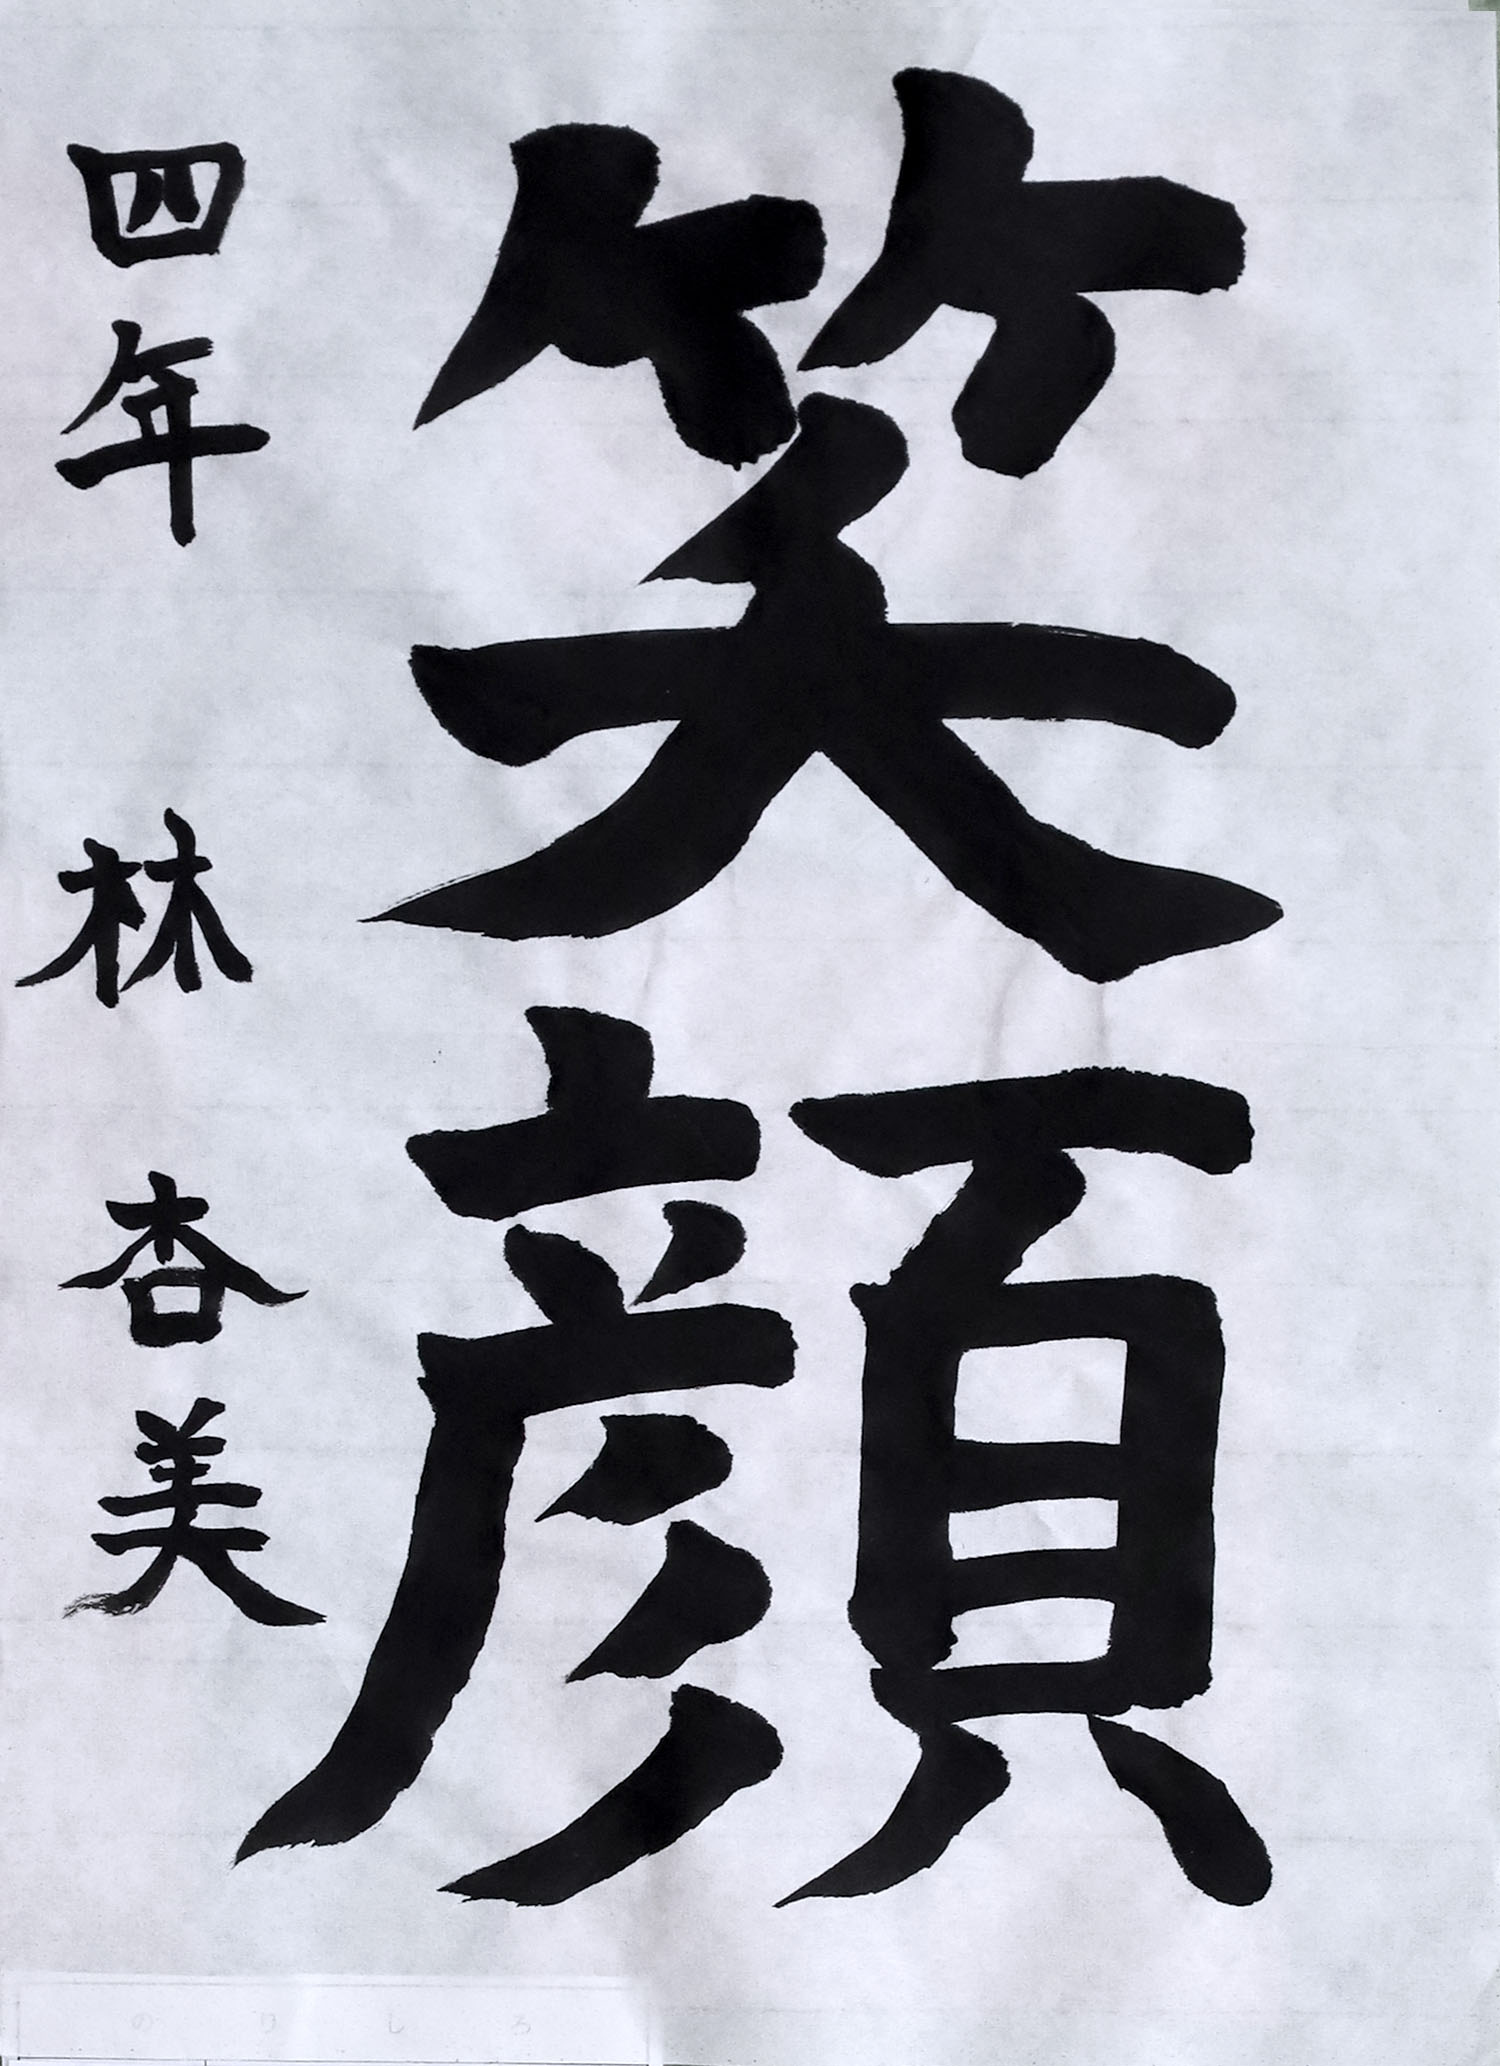 笑顔
四年 林 杏美
のりしろ